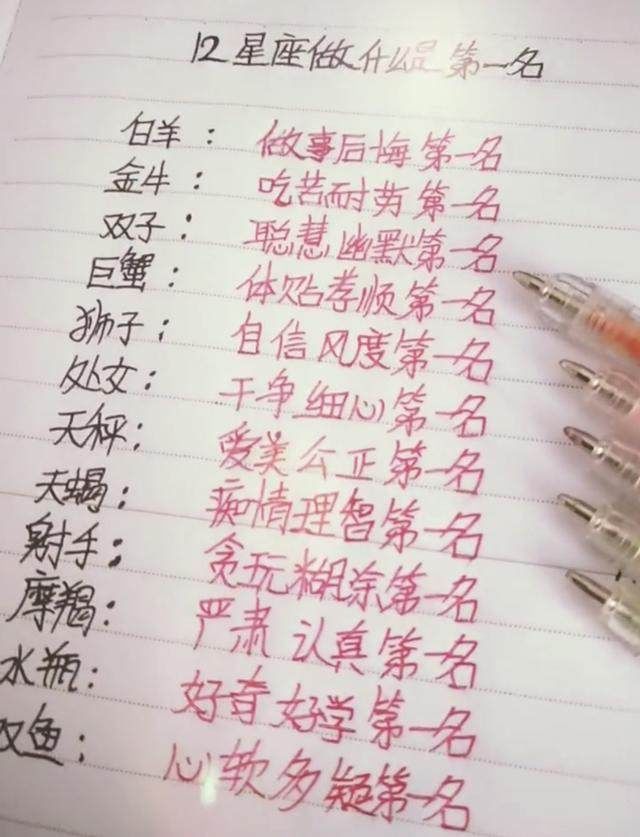 12星座做什么是第一名
白羊：做事后悔第一名
金牛：吃苦耐劳第一名
双子：聪慧幽默第一名
巨蟹：体贴孝顺第一名
狮子：自信风度第一名
处女：干净细心第一名
天秤：爱美公正第一名
天蝎：痴情理智第一名
射手：贪玩糊涂第一名
摩羯：严肃认真第一名
水瓶：好奇好学第一名
双鱼：心软多疑第一名